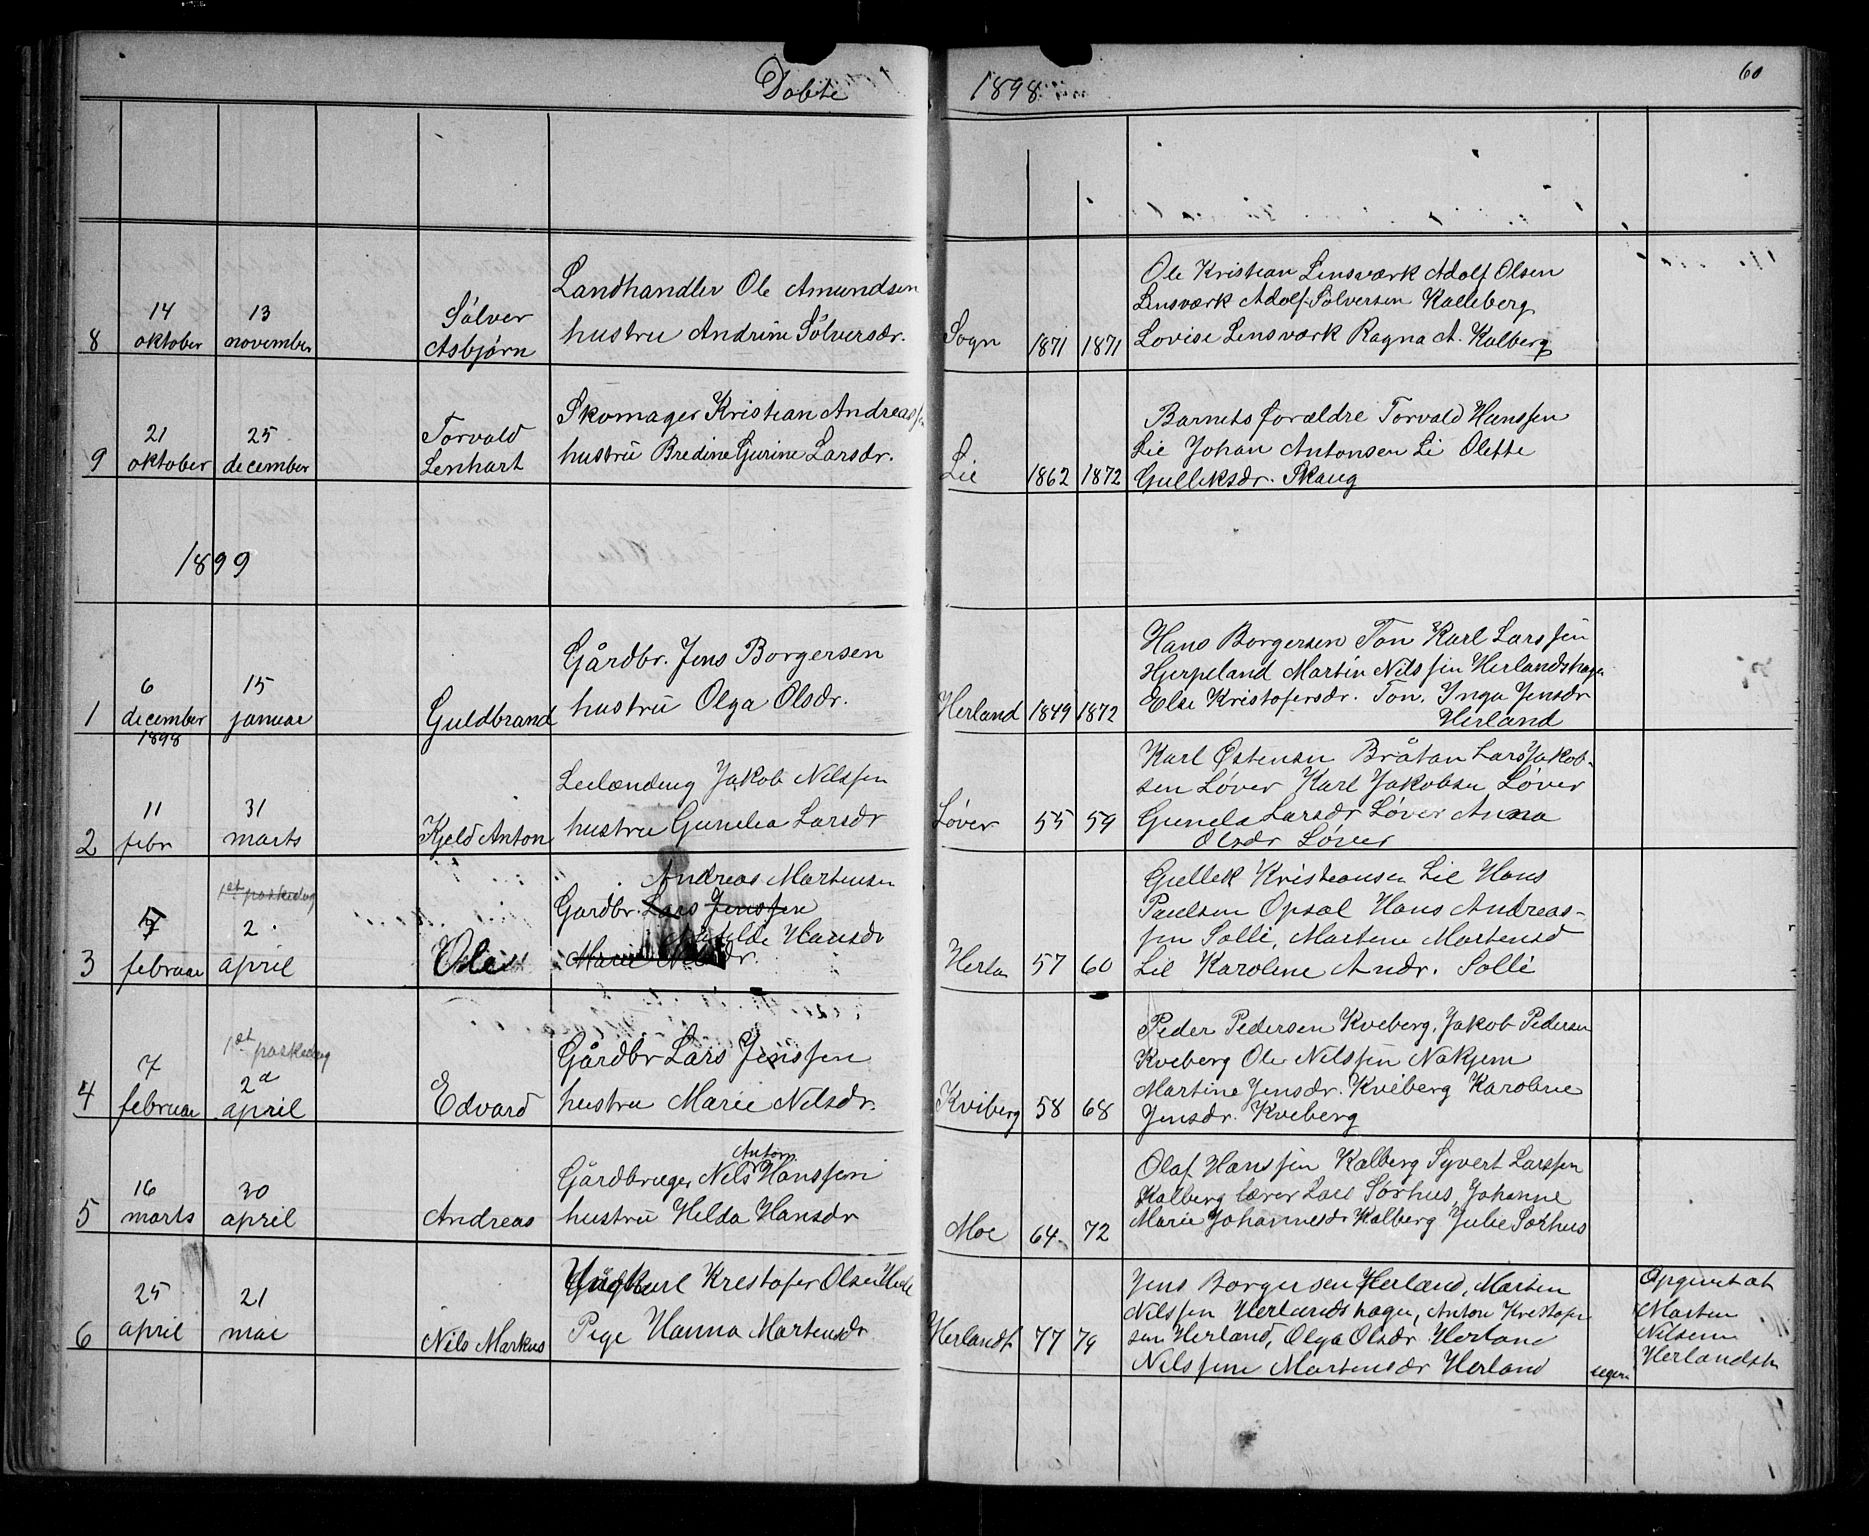 Døbte 1898 60
8 14 oktober 13 november Sølver Asbjørn
Landhandler Ole Amundsen
hustru Andrine Sølversdr.
Sogn 1871 1871
Ole Kristian Lensværk Adolf Olsen
Lensværk Adolf Sølversen Kalleberg
Lovise Lensværk Ragna A. Kalberg
9 21 oktober 25 december Torvald Lenhart
Skomager Kristian Andreassen
hustru Bredine Gurine Larsdr.
Lie 1862 1872
Barnets forældre Torvald Hanssen
Lie Johan Antonsen Li Olette
Gulleksdr. Skaug
1899
1 6 december 1898 15 januar Guldbrand
Gårdbr. Jens Borgersen
hustru Olga Olsdr.
Herland 1849 1872
Hans Borgersen Ton Karl Larssen
Hjerpeland Martin Nilssen Herlandshagen
Else Kristofersdr. Ton. Inga Jensdr
Herland
2 11 febr 31 marts Kjeld Anton
Leilænding Jakob Nilssen
hustru Gunelia Larsdr
Løver 55 59
Karl Østensen Bråtan Lars Jakob-
sen Løver Karl Jakobsen Løver
Gunela Larsdr Løver Anna
Olsdr Løver
3 7 februar 1st paskedag 2. april Ole
Andreas Martensen
Gardbr. Lars Jenssen
Matilde Hansdr
Marie Nilsdr.
Herla 57 60
Gullek Kristiansen Lie Hans
Paulsen Opsal Hans Andreas-
sen Solli, Martene Martensd
Lie Karoline Andr. Solli
4 7 februar 1st paskedag 2d april Edvard
Gårdbr Lars Jenssen
hustru Marie Nilsdr.
Kviberg 58 68
Peder Pedersen Kveberg, Jakob Pedersen
Kveberg Ole Nilssen Nakjem
Martine Jensdr. Kveberg Karoline
Jensdr. Kveberg
5 16 marts 30 april Andreas
Anton
Gårdbruger Nils Hanssen
hustru Helda Hansdr
Moe 64 72
Olaf Hanssen Kalberg Syvert Larssen
Kalberg lærer Lars Sørhus, Johanne
Marie Johannesdr Kalberg Julie Sørhus
6 25 april 21 mai Nils Markus
Ungkarl Krestofer Olsen
Pige Hanna Martensdr
Herlandsh 77 79
Jens Borgersen Herland, Martin
Nilssen Herlandshagen, Anton Krestofer
sen Herland, Olga Olsdr Herland
Nilssine Martensdr Herland
uegte
Opgivet at
Marten
Nilsen
Herlandsh